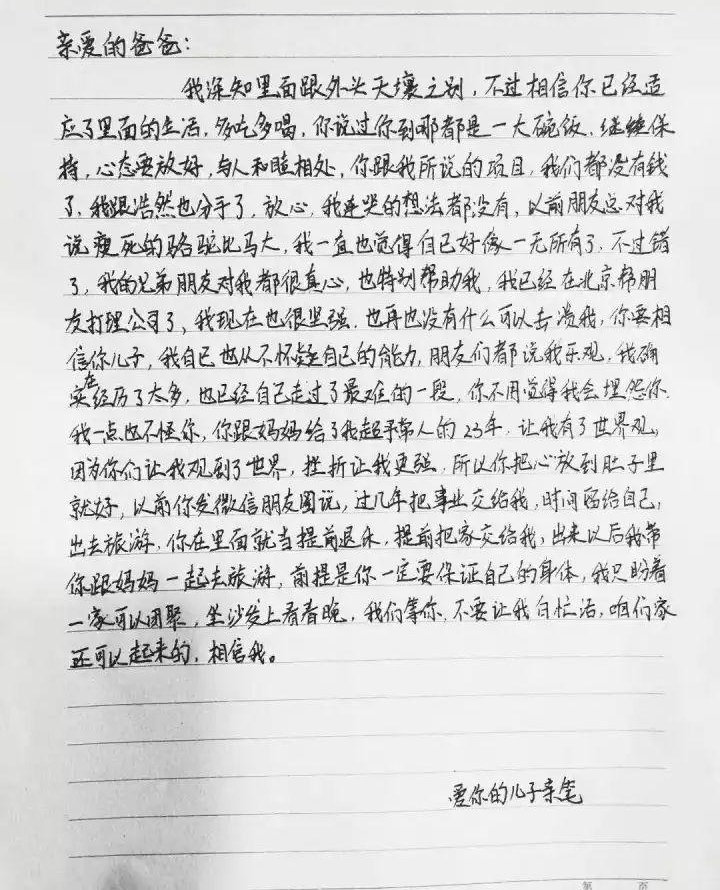 亲爱的爸爸：
我深知里面跟外头天壤之别，不过相信你已经适
应了里面的生活，多吃多喝，你说过你到哪都是一大碗饭，继续保
持，心态要放好，与人和睦相处，你跟我所说的项目，我们都没有钱
了，我跟浩然也分手了，放心，我连哭的想法都没有，以前朋友总对我
说瘦死的骆驼比马大，我一直也觉得自己好像一无所有了，不过错
了，我的兄弟朋友对我都很真心，也特别帮助我，我已经在北京帮朋
友打理公司了，我现在也很坚强，也再也没有什么可以击溃我，你要相
信你儿子，我自己也从不怀疑自己的能力，朋友们都说我乐观，我确
实在经历了太多，也已经自己走过了最难的一段，你不用觉得我会埋怨你
我一点也不怪你，你跟妈妈给了我超乎常人的23年，让我有了世界观，
因为你们让我观到了世界，挫折让我更强，所以你把心放到肚子里
就好，以前你发微信朋友圈说，过几年把事业交给我，时间留给自己，
出去旅游，你在里面就当提前退休，提前把家交给我，出来以后我带
你跟妈妈一起去旅游，前提是你一定要保证自己的身体，我只盼着
一家可以团聚，坐沙发上看春晚，我们等你，不要让我白忙活，咱们家
还可以起来的，相信我。
爱你的儿子亲笔
第 页